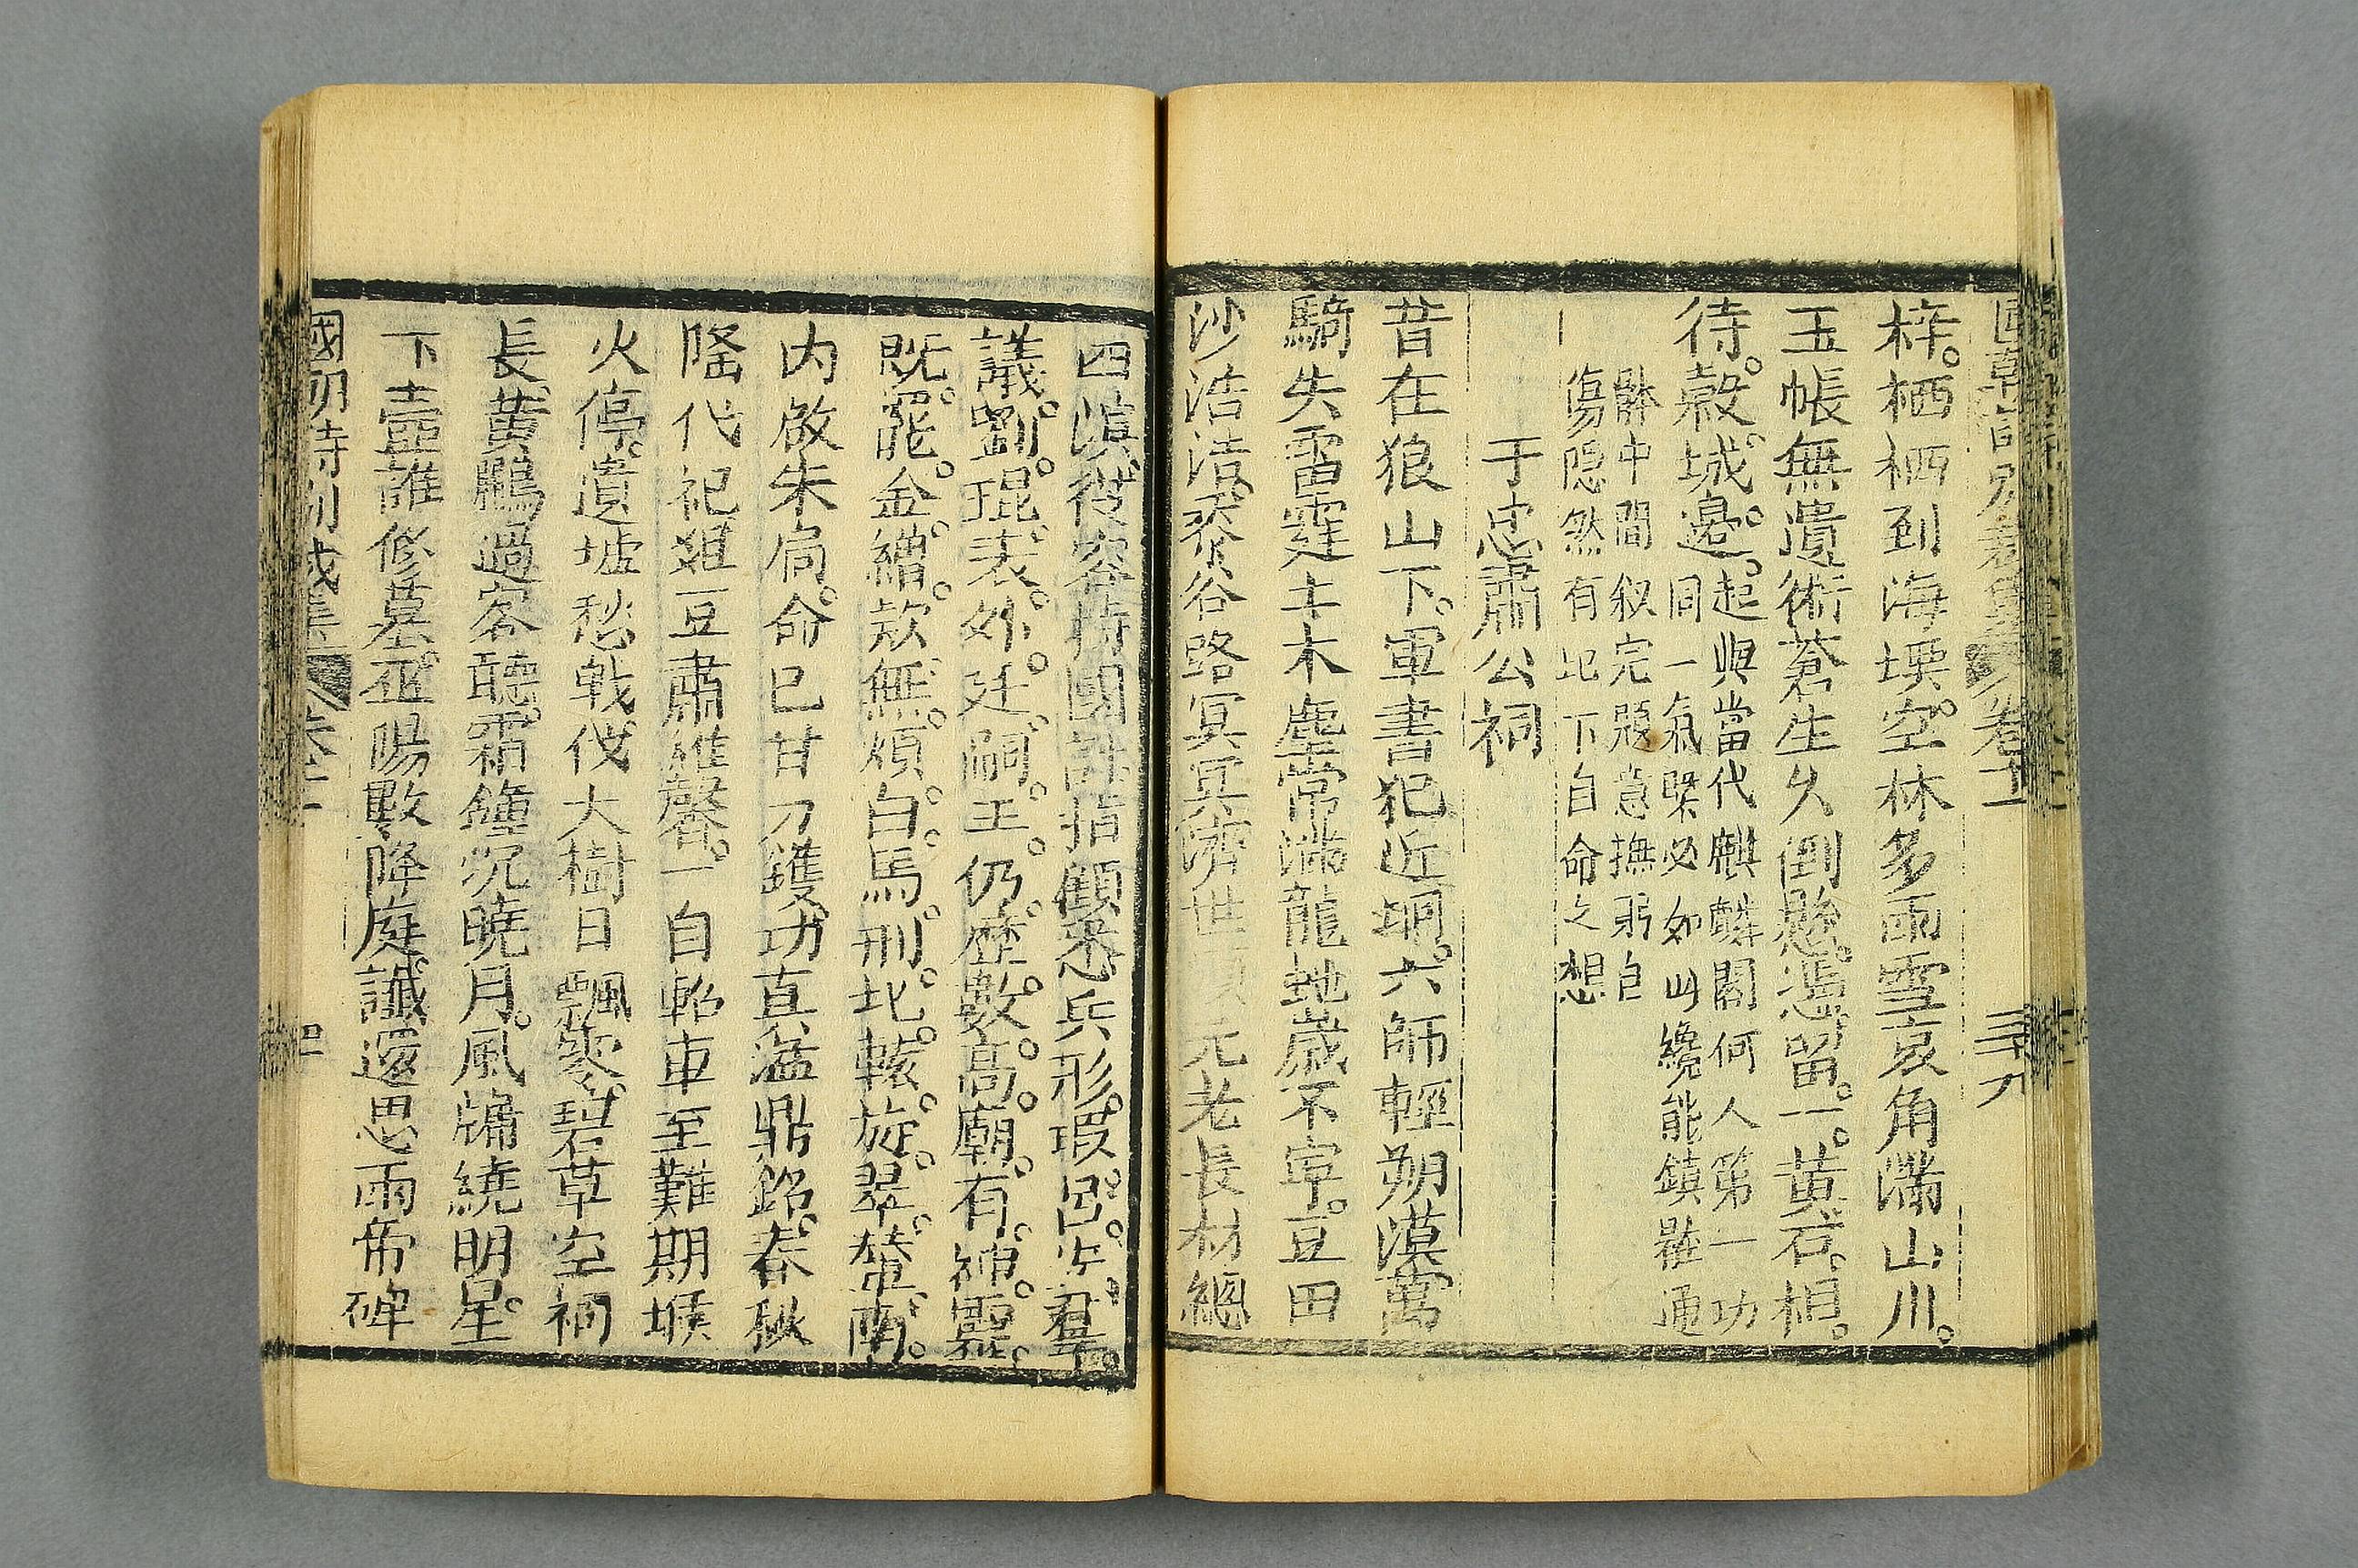 梓。栖栖到海堧。空林多雨雪哀角滿山川。
玉帳無遺術蒼生久倒懸。淹留。一。黄石。相。
待。穀。城。邊。起與當代麒麟閣何人第一功
同一氣槩必如此纔能鎮羅通
骵中間叙完題意撫躬自
傷隐然有北下自命之想
于忠肅公祠
昔在狼山下。軍書犯近坰。六師輕朔漠萬
騎失雷霆土木塵常滿龍地歲不寧。豆田
沙浩浩。黍谷路冥冥濟世元老長材總
四溟。從容持國計指顧悉兵形。瑕。呂。安。羣。
議。劉。琨。表。外。廷。嗣。王。仍。歴。數。高。廟。有。神。靈。
既。罷。金。繒。欵。無。煩。白。馬。刑。北。轅。旋。翠。輦。南。
内啟朱扃。命已甘刀鑊功直溢鼎銘。春秋
隆代祀俎豆肅維馨。一自軺車至難期堠
火停。遺墟愁戰伐大樹日飄零。碧草空祠
長。黄鸝過客聽。霜鐘沉曉月。風牖繞明星。
下壼誰修墓。巫陽歟降庭。議還思兩帝碑
國初詩别裁集 卷十一 四